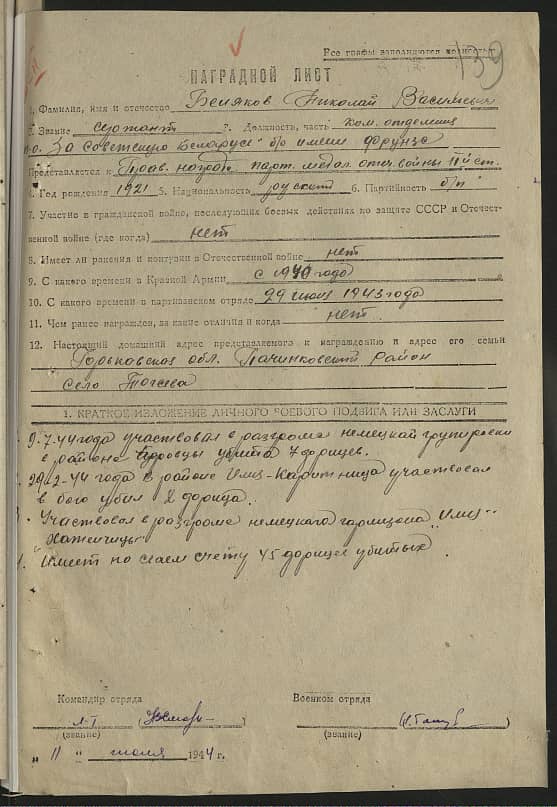 Все графы заполняются полностью
139
НАГРАДНОЙ ЛИСТ
1. Фамилия, имя и отчество Беляков Николай Васильевич
2. Звание сержант 3. Должность, часть ком. отделения
п-о. "За Советскую Беларусь" б/о имени Фрунзе
Представляется к Прав. награде парт. медал. отеч. войны II й ст.
4. Год рождения 1921 5. Национальность русский 6. Партийность б/п
7. Участие в гражданской войне, последующих боевых действиях по защите СССР и Отечест-
венной войне (где когда) нет
8. Имеет ли ранения и контузии в Отечественной войне нет
9. С какого времени в Красной Армии с 1940 года
10. С какого времени в партизанском отряде 29 1943 года
11. Чем ранее награжден, за какие отличия и когда нет
12. Настоящий домашний адрес представляемого к награждению и адрес его семьи
Горьковская обл. Пачинковский район
село
1. КРАТКОЕ ИЗЛОЖЕНИЕ ЛИЧНОГО БОЕВОГО ПОДВИГА ИЛИ ЗАСЛУГИ
9-7-44 года участвовал в разгроме немецкай групировки
в районе убита 7 фрицев.
29-2-44 года в районе участвовал
в бою убил 2 фрица.
Участвовал в разгроме немецкого гарнизона
Имеет на своем счету 45 фрицев убитых
Командир отряда Военком отряда
л-т
(звание) (звание)
„ 11 " июля 1944 г.